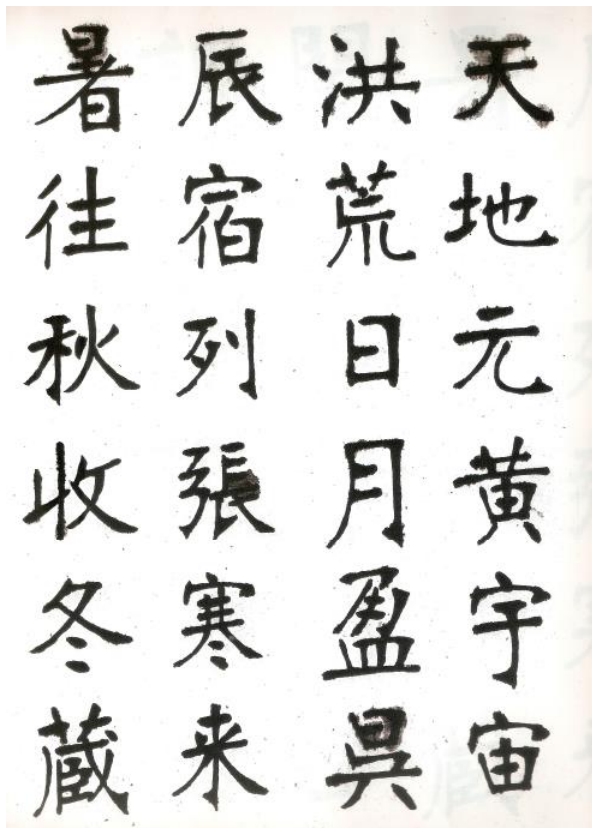 天地元黄宇宙
洪荒日月盈昃
辰宿列張寒来
暑往秋收冬蔵